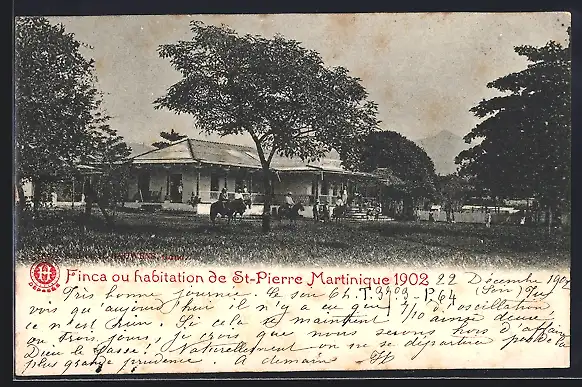 Finca ou habitation de St-Pierre Martinique 1902 22 Décembre 190
Très bonne journée. Ce soir 6h. T. 3903 - P. 64 Son
vois qu'aujourd'hui il n'y a eu que 1/10 d'oscillation
ce n'est rien. Si cela se maintient 1/10 ainsi deux
ou trois jours, je crois que nous serons hors d'affaire
Dieu le fasse! Naturellement on ne se départira pas de la
plus grande prudence. A demain